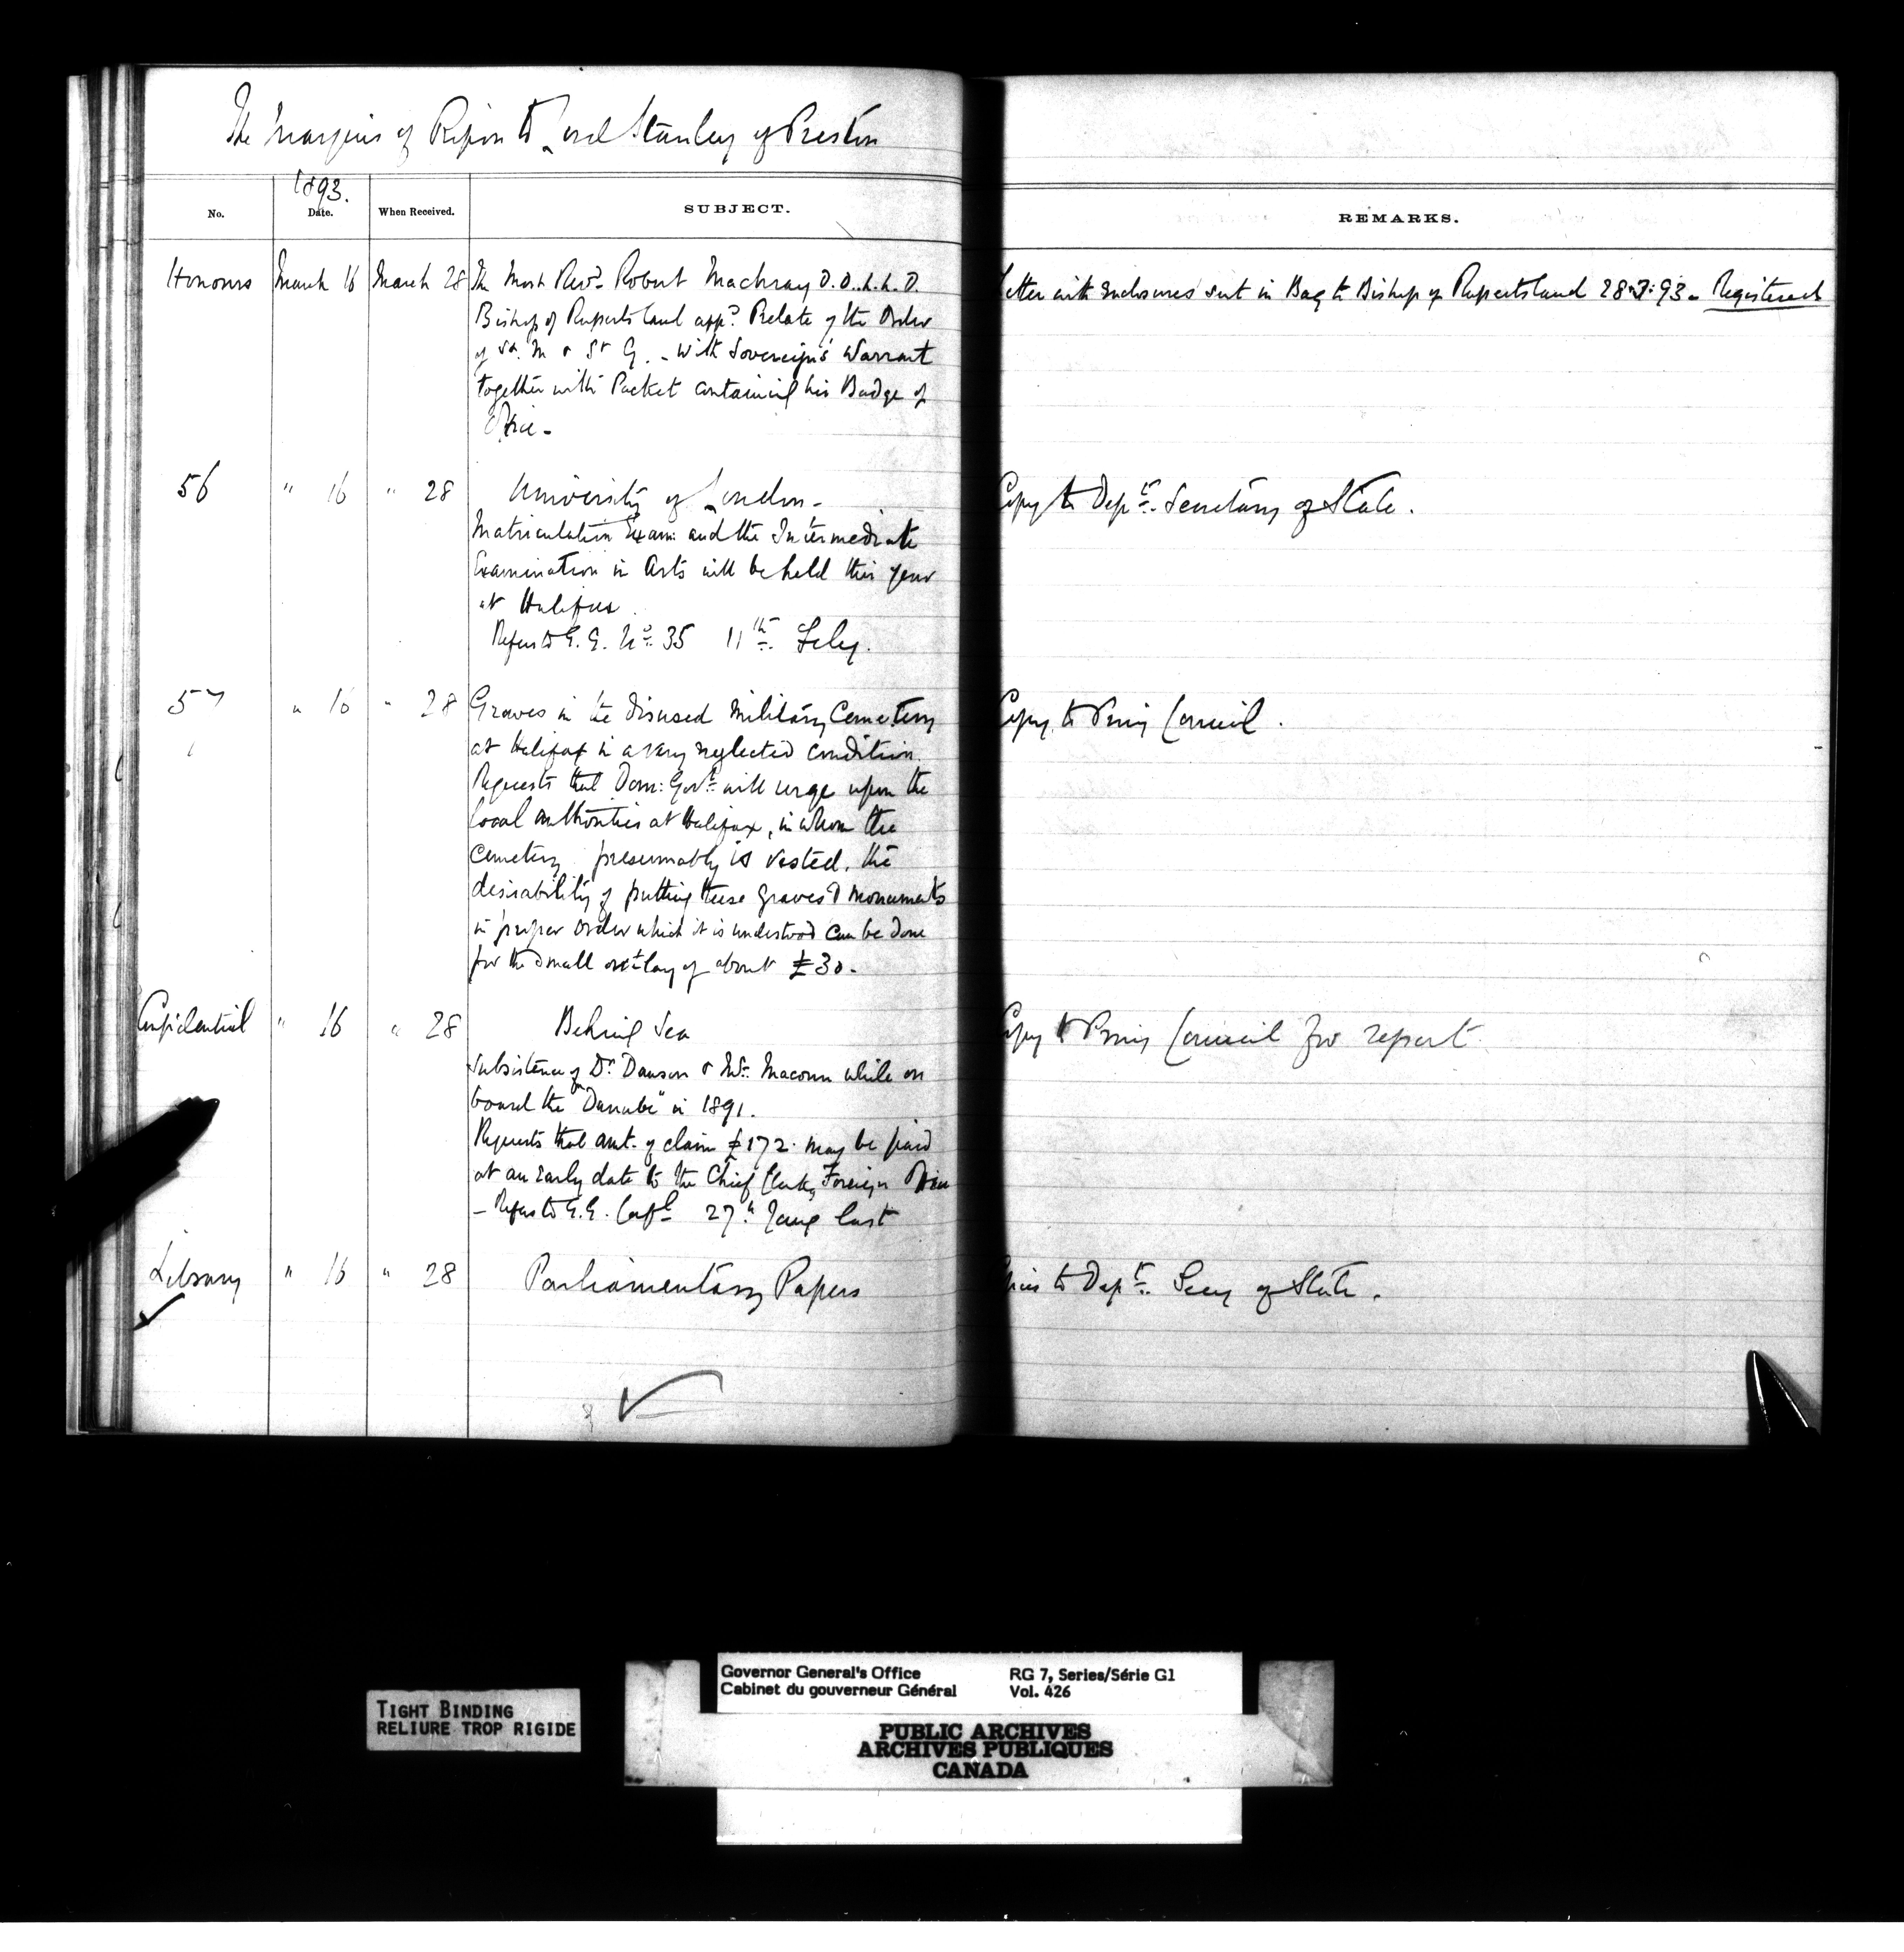 The Marquis of Ripon to Lord Stanley of Preston
1893.
No. Date. When Received. SUBJECT. REMARKS.
Honours March 16 March 28 The Most Revd. Robert Machray D.D..L.L.D. Letter with enclosures sent in Bag to Bishop of Rupertsland 28.3.93 - Registered
Bishop of Rupertsland appd. Prelate of the Order
of St. M & St G. - with Sovereign's Warrant
together with Packet containing his Badge of
Office -
56 " 16 " 28 University of London - Copy to Dept. Secretary of State.
Matriculation Exam: and the Intermediate
Examination in Arts will be held this year
at Halifax.
Refers to G.G. No. 35 11th. Feby.
57 " 16 " 28 Graves in the disused Military Cemetery Copy to Privy Council.
at Halifax in a very neglected condition.
Requests that Dom: Govt. will urge upon the
local authorities at Halifax, in whom the
Cemetery presumably is vested, the
desirability of putting these graves & monuments
in proper order which it is understood can be done
for the small outlay of about £30.
Confidential " 16 " 28 Behring Sea Copy to Privy Council for report.
Subsistence of Dr. Dawson & Mr. Macoun while on
board the "Danube" in 1891.
Requests that amt. of claim £172. may be paid
at an early date to the Chief Clerk, Foreign Office
- Refers to G.G. Confl. 27th Jany last
Library " 16 " 28 Parliamentary Papers Copies to Dept. Secy of State.
TIGHT BINDING
RELIURE TROP RIGIDE
Governor General's Office RG 7, Series/Série G1
Cabinet du gouverneur Général Vol. 426
PUBLIC ARCHIVES
ARCHIVES PUBLIQUES
CANADA